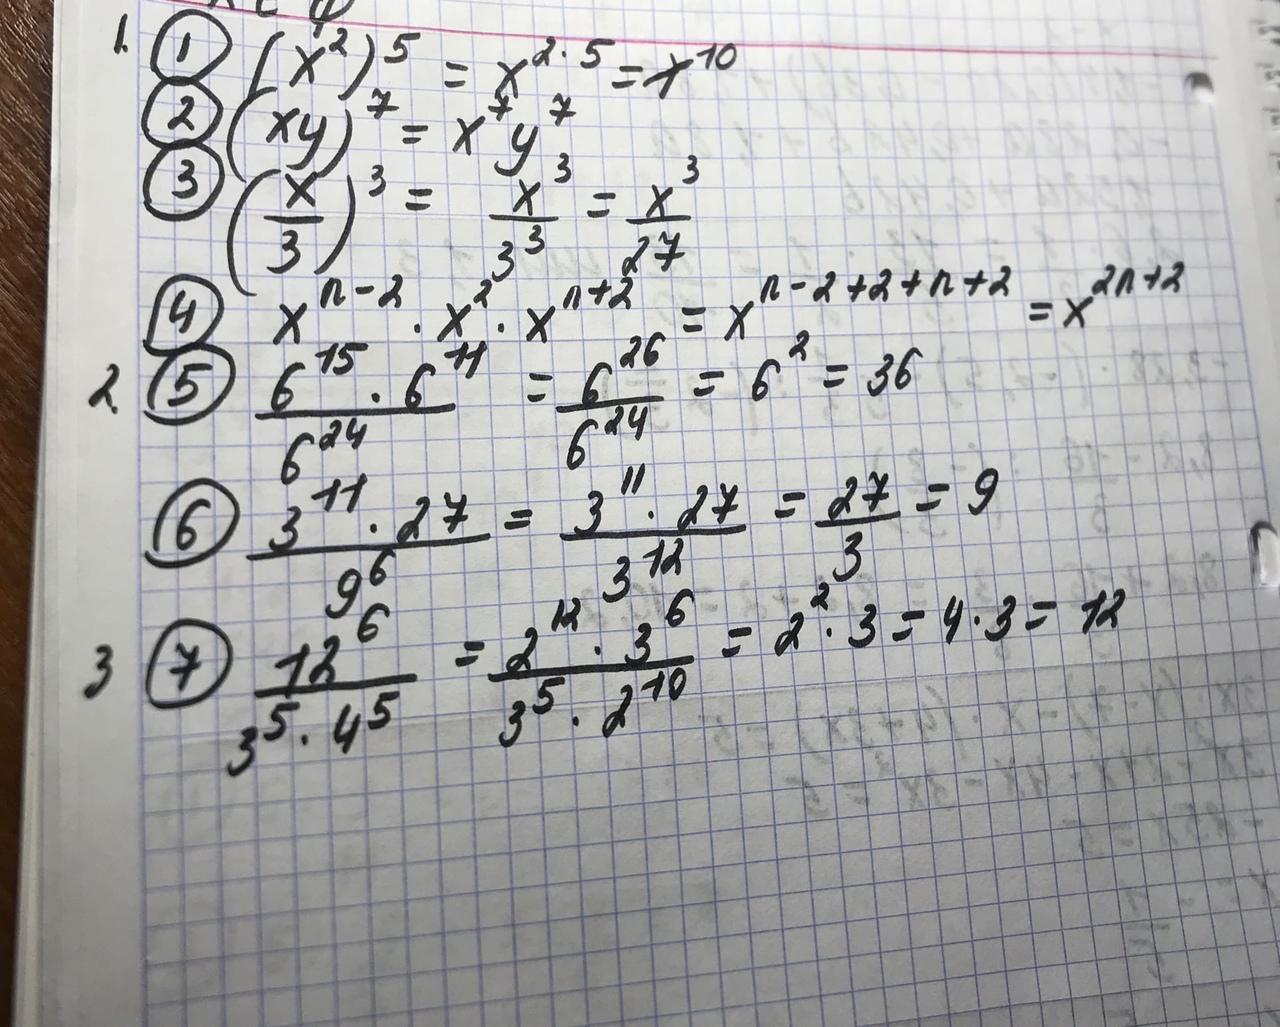 1. ① (x²)⁵ = x²·⁵ = x¹⁰
② (xy)⁷ = x⁷y⁷
③ (x/3)³ = x³/3³ = x³/27
④ xⁿ⁻² · x² · xⁿ⁺² = xⁿ⁻²⁺²⁺ⁿ⁺² = x²ⁿ⁺²
2. ⑤ 6¹⁵ · 6¹¹ / 6²⁴ = 6²⁶/6²⁴ = 6² = 36
⑥ 3¹¹ · 27 / 9⁶ = 3¹¹ · 27 / 3¹² = 27/3 = 9
3 ⑦ 12⁶ / 3⁵ · 4⁵ = 2¹² · 3⁶ / 3⁵ · 2¹⁰ = 2² · 3 = 4 · 3 = 12